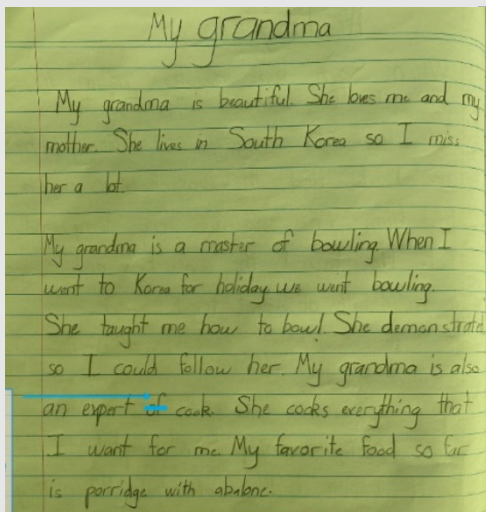 My grandma
My grandma is beautiful. She loves me and my
mother. She lives in South Korea so I miss
her a lot.
My grandma is a master of bowling When I
went to Korea for holiday we went bowling.
She taught me how to bowl. She demonstrated
so I could follow her. My grandma is also
an expert of cook. She cooks everything that
I want for me. My favorite food so far
is porridge with abalone.